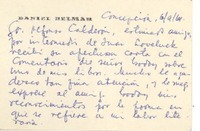 DANIEL BELMAR
Concepción,
Sr. Alfonso Calderón, estimado amigo:
por intermedio de Juan Loveluck
recibí su afectuosa carta con el
comentario del señor Godoy sobre
uno de mis libros. Mucho le agra-
dezco tan fina atención, y le ruego
exprese al amigo Godoy mis
reconocimientos por la forma en
que se refiere a mi labor lite-
raria